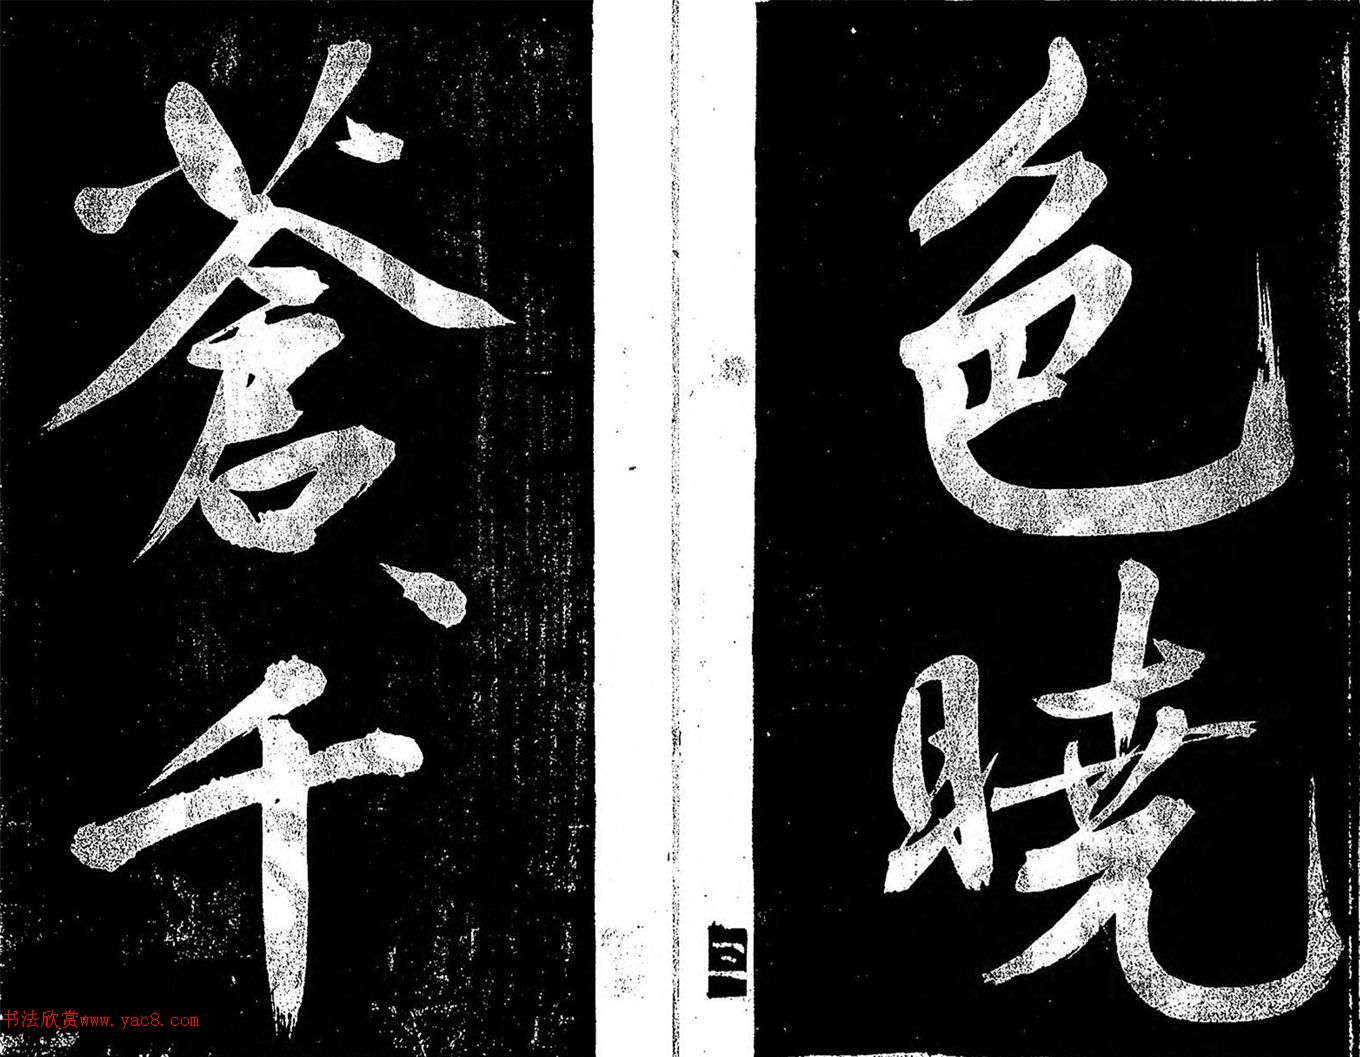 色曉
蒼々千
书法欣赏www.yac8.com